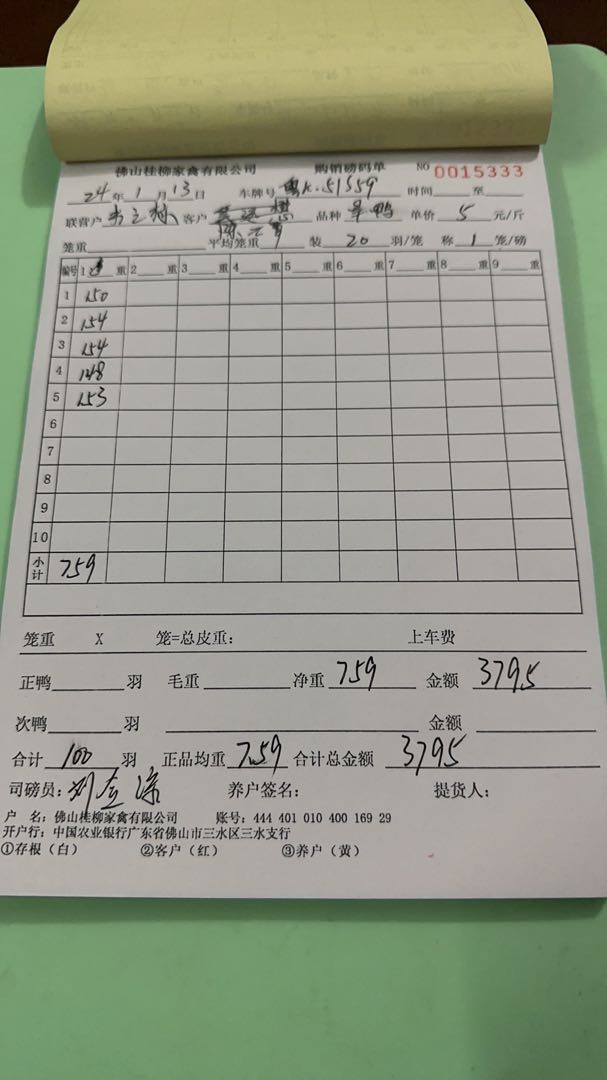 佛山桂柳家禽有限公司 购销磅码单 NO 0015333
24年1月13日 车牌号 粤K·51559 时间 至
联营户 客户 品种 单价 5 元/斤
笼重 平均笼重 装 20 羽/笼 称 1 笼/磅
编号 1 重 2 重 3 重 4 重 5 重 6 重 7 重 8 重 9 重
1 150
2 154
3 154
4 148
5 153
6
7
8
9
10
小计 759
笼重 X 笼=总皮重: 上车费
正鸭 羽 毛重 净重 759 金额 3795
次鸭 羽 金额
合计 100 羽 正品均重 7.59 合计总金额 3795
司磅员: 养户签名: 提货人:
户 名: 佛山桂柳家禽有限公司 账号: 444 401 010 400 169 29
开户行: 中国农业银行广东省佛山市三水区三水支行
①存根(白) ②客户(红) ③养户(黄)